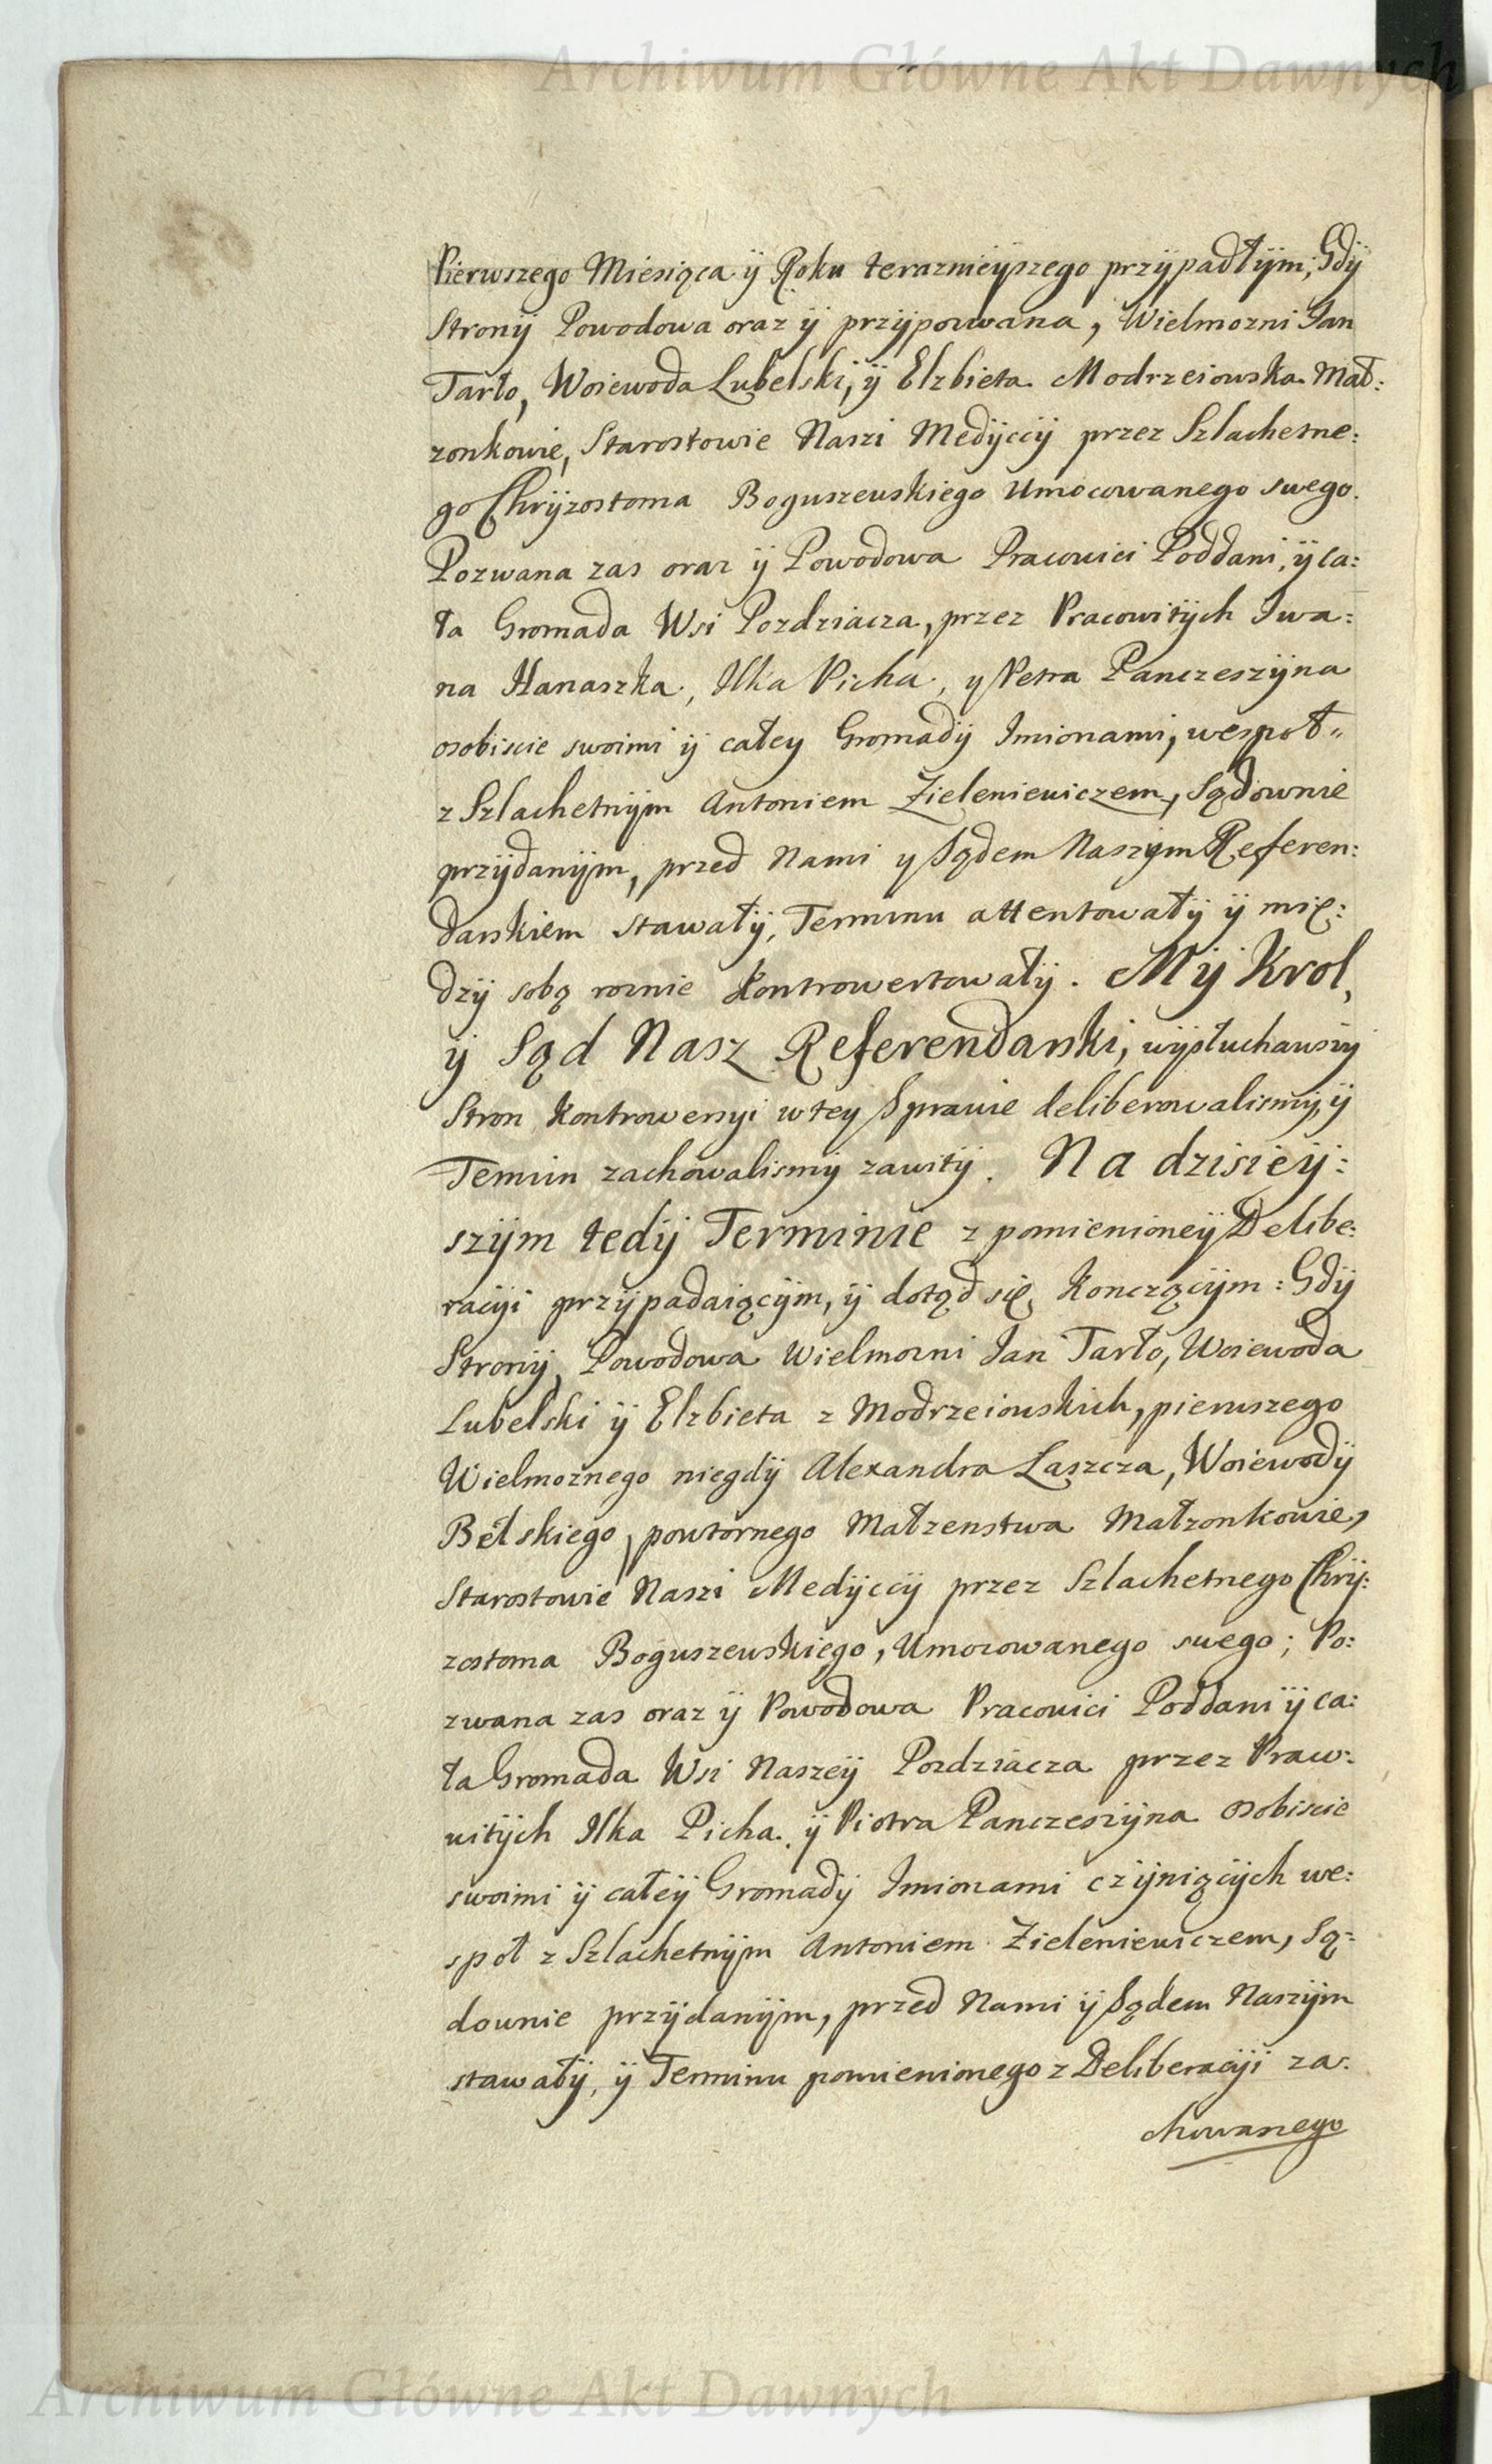 Archiwum Główne Akt Dawnych
Pierwszego Miesiąca ÿ Roku teraznieÿszego przÿpadłÿm, Gdÿ
Stronÿ Powodowa oraz ÿ przÿpozwana, Wielmozni Jan
Tarło, Woiewoda Lubelski, ÿ Elzbieta Modrzeiowska Mał:
zonkowie, Starostowie Naszi Medÿccÿ przez Szlachetne:
go Chrÿzostoma Boguszewskiego Umocowanego swego.
Pozwana zas oraz ÿ Powodowa Pracowici Poddani, ÿ ca:
ła Gromada Wsi Pozdziacza, przez Pracowitÿch Iwa:
na Hanaszka, Ilka Picha, y Petra Panczeszÿna
osobiscie swoimi ÿ całey Gromadÿ Imionami, wespoł„
z Szlachetnÿm Antoniem Zieleniewiczem, Sądownie
przÿdanÿm, przed Nami y Sądem Naszÿm Referen:
darskiem stawałÿ, Terminu attentowałÿ ÿ mię:
dzÿ sobą roznie kontrowertowałÿ. Mÿ Krol,
ÿ Sąd Nasz Referendarski, wÿsłuchawszÿ
Stron kontrowersyi w tey Sprawie deliberowalismÿ, ÿ
Termin zachowalismÿ zawitÿ. Na dzisieÿ:
szÿm tedÿ Terminie z pomienioneÿ Delibe:
racÿi przÿpadaiącÿm, ÿ dotąd się konczącÿm: Gdÿ
Stronÿ, Powodowa Wielmozni Jan Tarło, Woiewoda
Lubelski ÿ Elzbieta z Modrzeiowskich, pierwszego
Wielmoznego niegdÿ Alexandra Łaszcza, Woiewodÿ
Bełskiego, powtornego Małzenstwa Małzonkowie,
Starostowie Naszi Medÿccÿ przez Szlachetnego Chrÿ:
zostoma Boguszewskiego, Umocowanego swego; Po:
zwana zas oraz ÿ Powodowa Pracowici Poddani ÿ ca:
ła Gromada Wsi Naszeÿ Pozdziacza przez Praw:
witÿch Ilka Picha, ÿ Piotra Panczeszÿna osobiscie
swoimi ÿ całeÿ Gromadÿ Imionami czÿniącÿch we:
społ z Szlachetnÿm Antoniem Zieleniewiczem, Są:
downie przÿdanÿm, przed Nami ÿ Sądem Naszÿm
stawałÿ, ÿ Terminu pomienionego z Deliberacÿi za:
chowanego
Archiwum Główne Akt Dawnych